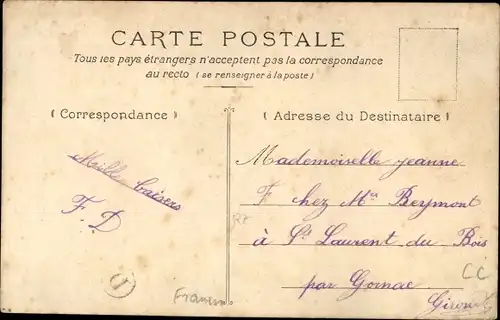 CARTE POSTALE
Tous les pays étrangers n'acceptent pas la correspondance
au recto (se renseigner à la poste)
(Correspondance)
Mille baisers
F. D.
(Adresse du Destinataire)
Mademoiselle Jeanne
F chez Mr Reymont
à St Laurent du Bois
par Gornac
Gironde
CC